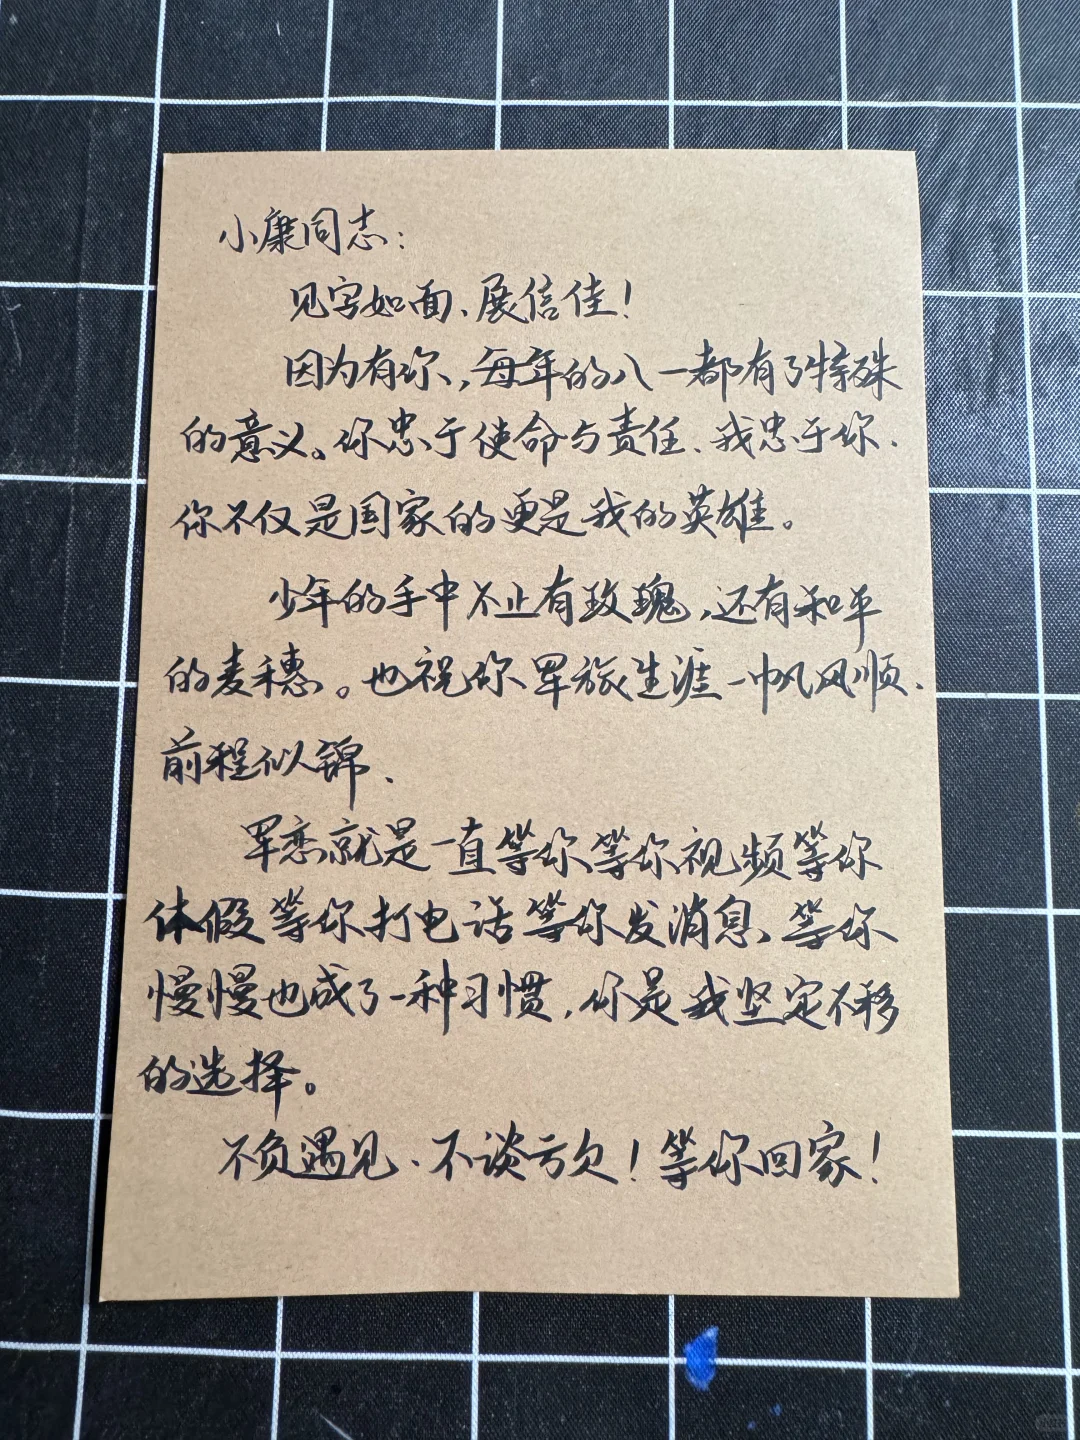 小康同志：
见字如面、展信佳！
因为有你，每年的八一都有了特殊
的意义。你忠于使命与责任、我忠于你.
你不仅是国家的更是我的英雄。
少年的手中不止有玫瑰，还有和平
的麦穗。也祝你军旅生涯一帆风顺.
前程似锦.
军恋就是一直等你等你视频等你
休假等你打电话等你发消息、等你
慢慢也成了一种习惯，你是我坚定不移
的选择。
不负遇见.不谈亏欠！等你回家！